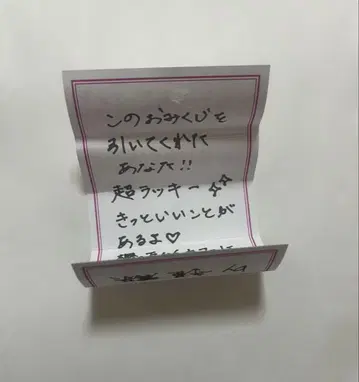 このおみくじを
引いてくれた
あなた!!
超ラッキー✨
きっといいことが
あるよ♡